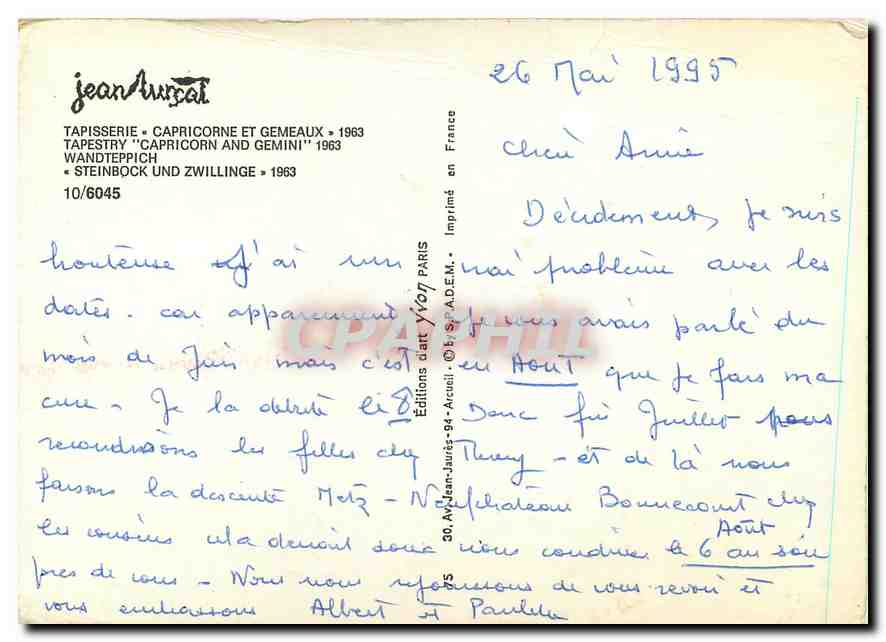 jean Lurçat
TAPISSERIE « CAPRICORNE ET GEMEAUX » 1963
TAPESTRY "CAPRICORN AND GEMINI" 1963
WANDTEPPICH
« STEINBOCK UND ZWILLINGE » 1963
10/6045
26 Mai 1995
Chère Annie
Décidement, je suis
honteuse j'ai un vrai problème avec les
dates. car apparement je vous avais parlé du
mois de Juin mais c'est en Aout que je fais ma
cure. Je la débute le 8 Donc fin Juillet nous
reconduisons les filles chez Thierry - et de là nous
faisons la descente Metz - Neufchateau Bonnecourt chez
les cousins cela devrait donc nous conduire le 6 Août au soir
près de vous - Nous nous rejouissons de vous revoir et
vous embrassons Albert et Paulette
75 30, Av. Jean-Jaurès - 94 - Arcueil - © by S.P.A.D.E.M. • Imprimé en France
Éditions d'art Yvon PARIS
CPAPHIL